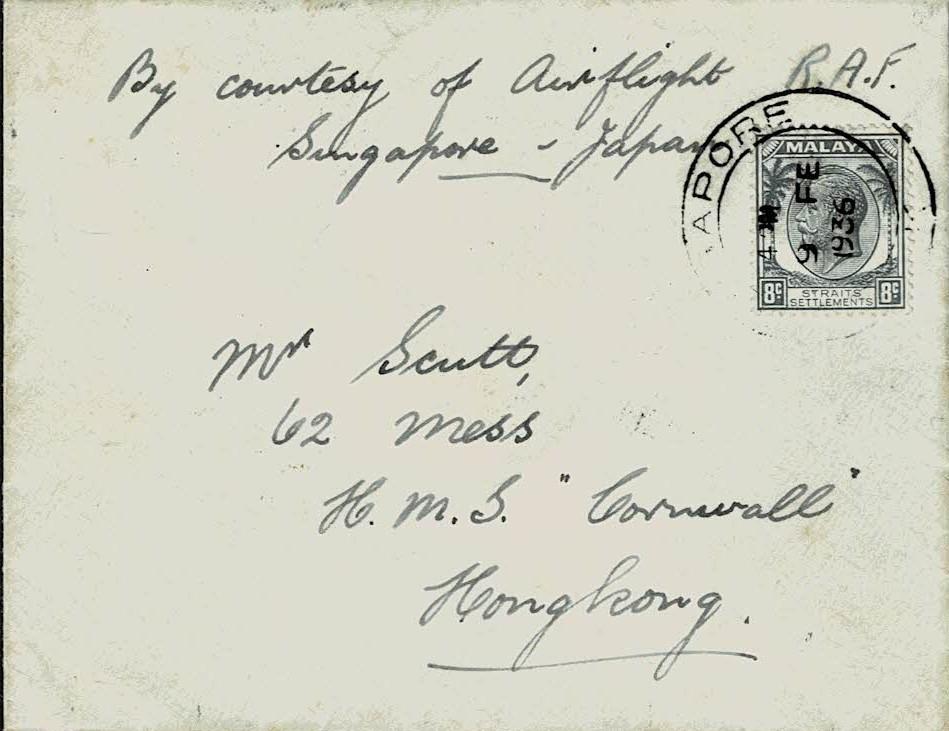 By courtesy of Airflight R.A.F.
Singapore - Japan
APORE
MALAYA
4 PM
9 FE
1936
8c STRAITS SETTLEMENTS 8c
Mr Scutt,
62 Mess
H.M.S. "Cornwall"
Hongkong.